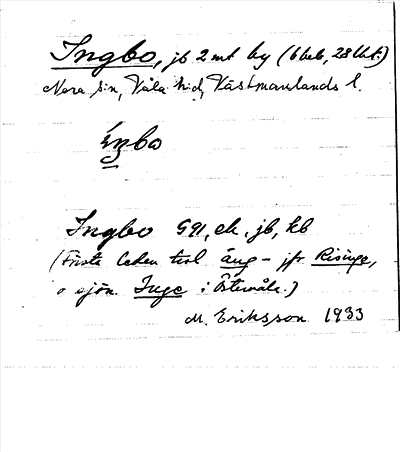 Ingbo, jb 2 mt by (6 beb, 28 utt.)
Nora sn, Våla hd, Västmanlands l.
Ingbo G91, ek, jb, kb
(Första leden trol äng- jfr Risinge,
o sjön Inge i Östervåla.)
M. Eriksson 1933